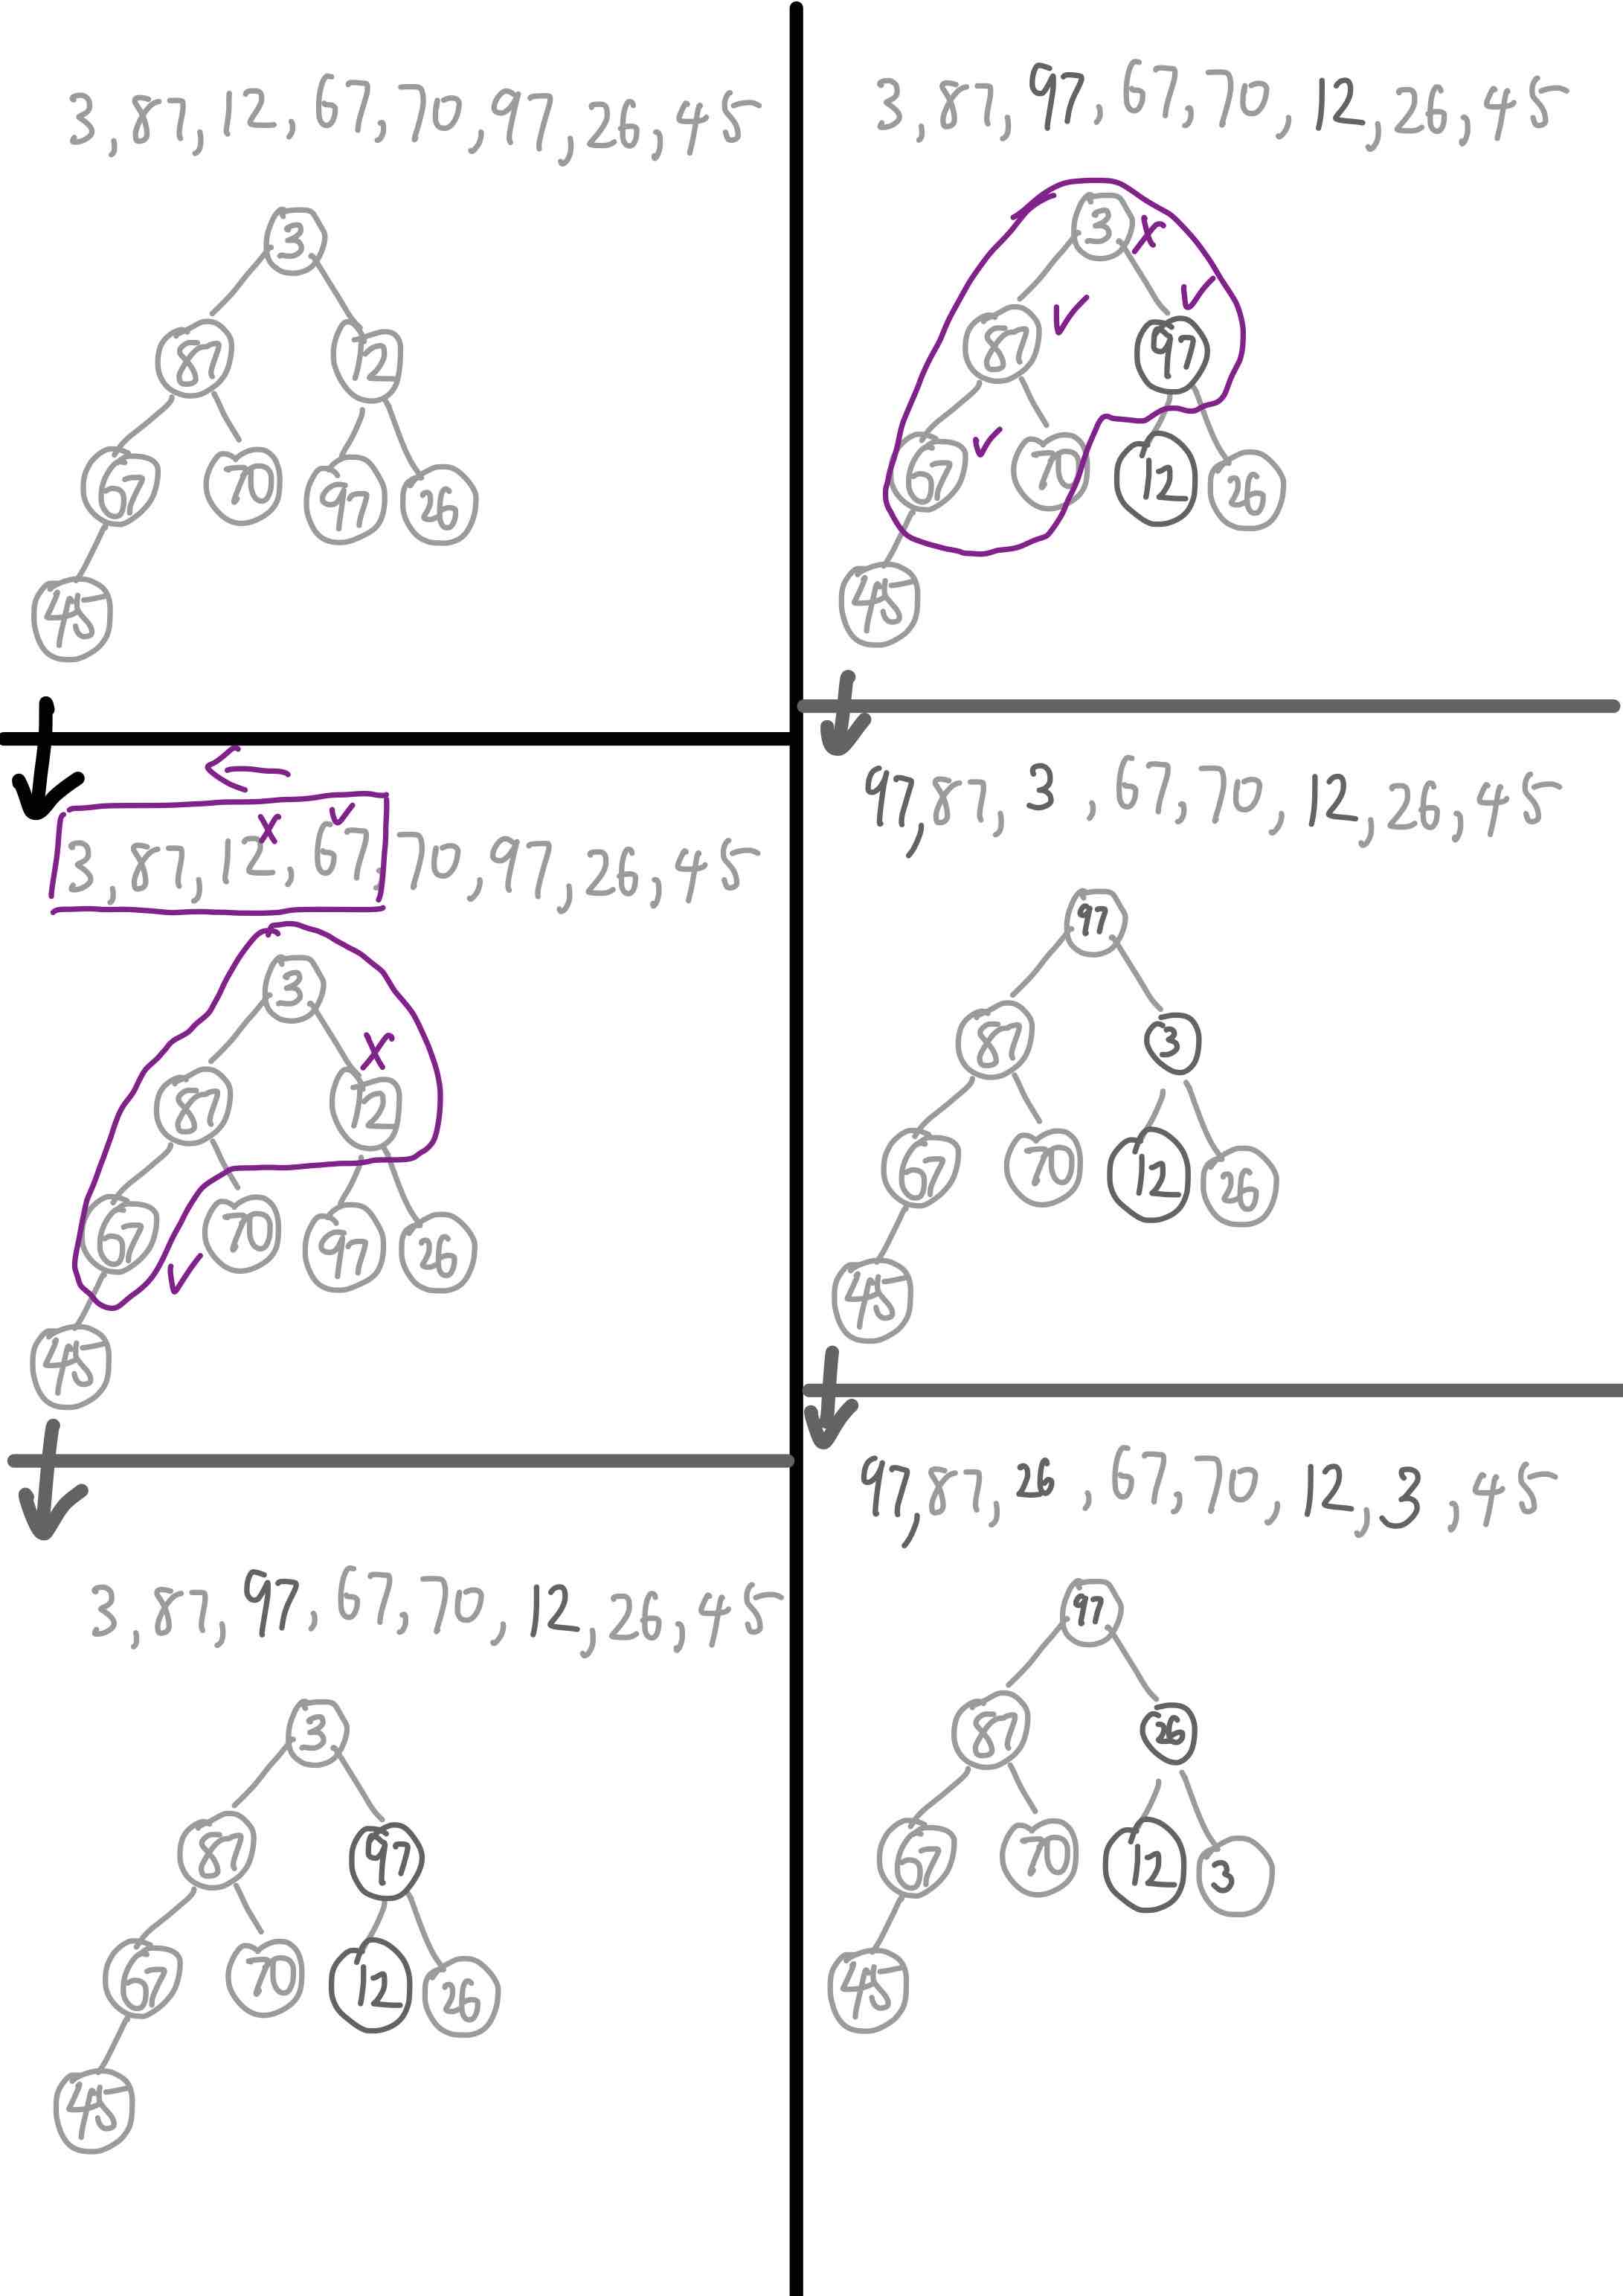 3, 87, 12, 67, 70, 97, 26, 45
3
87 12
67 70 97 26
45
3, 87, 12, 67, 70, 97, 26, 45
3
87 12
67 70 97 26
45
3, 87, 97, 67, 70, 12, 26, 45
3
87 97
67 70 12 26
45
3, 87, 97, 67, 70, 12, 26, 45
3
87 97
67 70 12 26
45
97, 87, 3, 67, 70, 12, 26, 45
97
87 3
67 70 12 26
45
97, 87, 26, 67, 70, 12, 3, 45
97
87 26
67 70 12 3
45